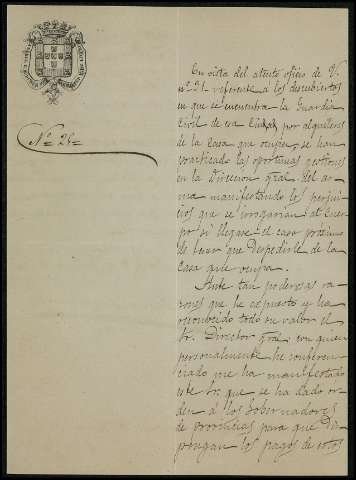 Nº 25=
En vista del atento oficio de V.
nº 21 referente á los descubiertos
en que se encuentra la Guardia
Civil de esa Ciudad por alquileres
de la casa que ocupa, se han
practicado las oportunas gestiones
en la Direccion gral. del ar-
ma manifestando los perjui-
cios que se irrogarian al Cuer-
po si llegase el caso próximo
de tener que despedirle de la
casa que ocupa.
Ante tan poderosas ra-
zones que he expuesto y ha
reconocido todo su valor el
Sr. Director gral. con quien
personalmente he conferen-
ciado me ha manifestado
este Sr. que se ha dado or-
den á los Gobernadores
de provincias para que dis-
pongan los pagos de estos